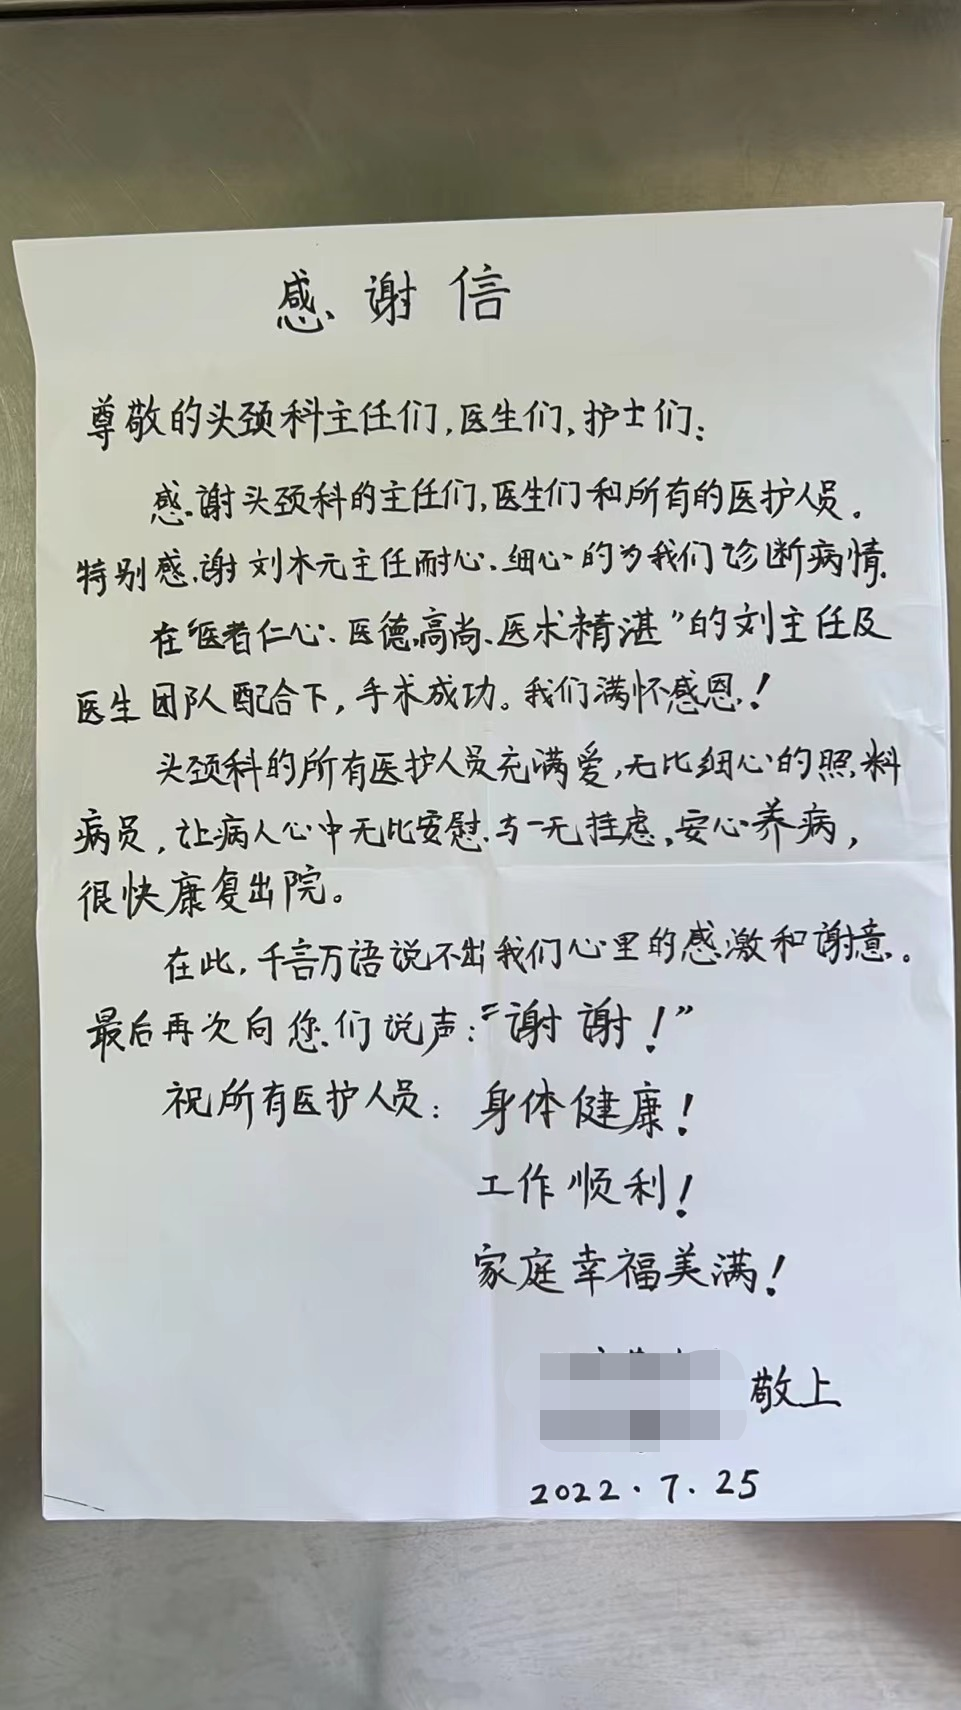 感谢信
尊敬的头颈科主任们，医生们，护士们：
感谢头颈科的主任们，医生们和所有的医护人员。
特别感谢刘木元主任耐心、细心的为我们诊断病情.
在“医者仁心、医德高尚、医术精湛”的刘主任及
医生团队配合下，手术成功。我们满怀感恩！
头颈科的所有医护人员充满爱，无比细心的照料
病员，让病人心中无比安慰.与一无挂虑，安心养病，
很快康复出院。
在此，千言万语说不出我们心里的感激和谢意。
最后再次向您们说声：“谢谢！”
祝所有医护人员：身体健康！
工作顺利！
家庭幸福美满！
敬上
2022.7.25